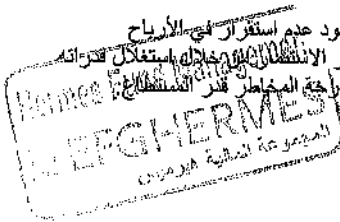 ود عدم استقرار في الأرباح
الانتشار من خلال استغلال قدراته
المخاطر قدر المستطاع.
Hermes
EFG-HERMES
المجموعة المالية هيرميس